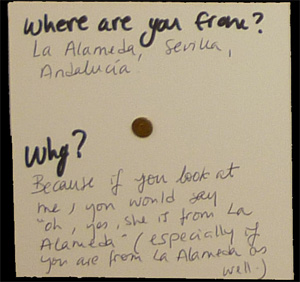 Where are you from?
La Alameda, Sevilla,
Andalucía
Why?
Because if you look at
me, you would say
"oh, yes, she is from La
Alameda" (especially if
you are from La Alameda as
well.)